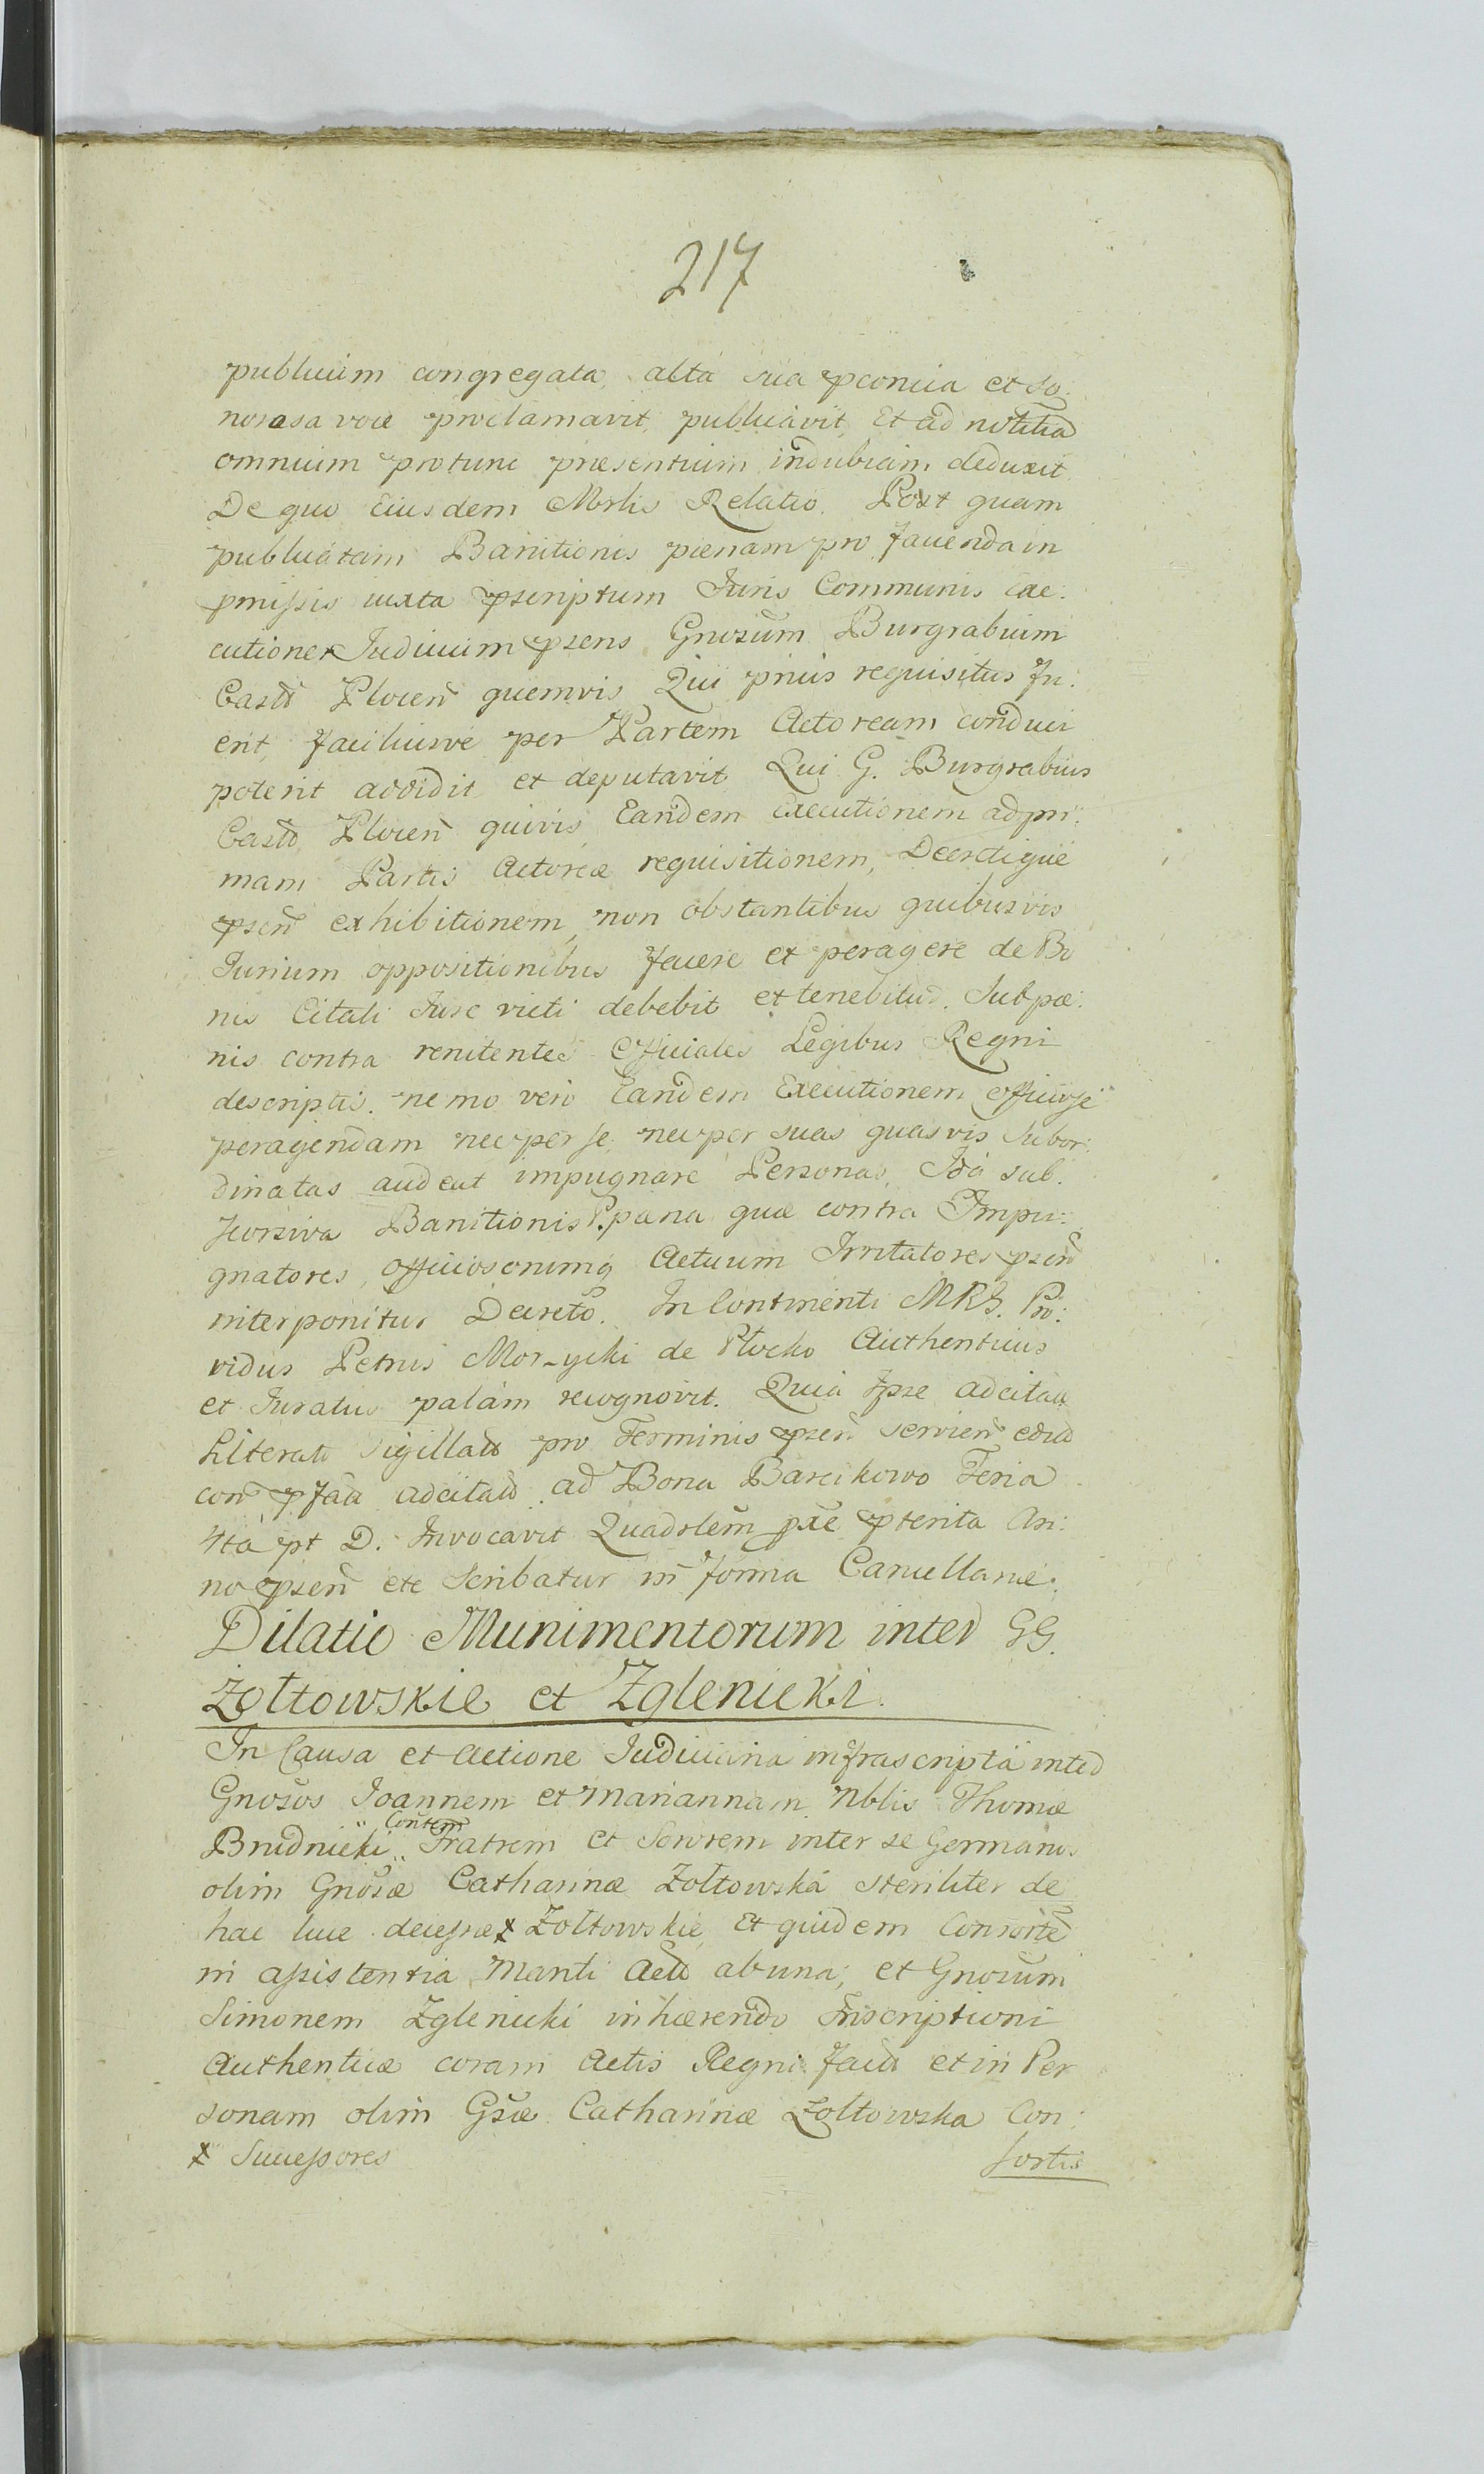 217
publicum congregata, alta sua pconicia et so:
norasa voce proclamavit, publicavit, Et ad notitiã
omnium protunc præsentium indubiam deduxit.
De quo Eiusdem Mrlis Relatio. Post quam
publicatam Banitionis pænam pro facienda in
pmissis iuxta pscriptum Juris Communis exe:
cutione Judicium psens Gnosum Burgrabium
Castr̃ Plocen̄ quemvis Qui prius requisitus fu:
erit, faciliusve per Partem Actoream conduci
poterit addidit et deputavit Qui G. Burgrabius
Castr̃ Plocen̄ quivis Eandem Executionem ad pri:
mam Partis Actoreæ requisitionem, Decretique
psen̄ exhibitionem, non obstantibus quibusvis
Jurium oppositionibus facere et peragere de Bo
nis Citati Jure victi debebit et tenebitur. Sub pæ:
nis contra renitentes Officiales Legibus Regni
descriptis. nemo vero Eandem Executionem officiose
peragendam nec per se nec per suas quasvis Subor:
dinatas audeat impugnare Personas, Idq́ sub
Pœna quæ contra Impu:
gnatores, officiosorumq́ Actuum Irritatores psen̄
interponitur Decreto. In Continenti MRS. Pro:
vidus Petrus Morzycki de Plocko Authenticus
et Juratus palam recognovit. Quia Ipse adcitatt
Literatt Sigillatt pro Terminis psen̄ servien̄
con̄ adcitatt ad Bona Barcikowo Feria
4ta pt D. Invocavit Quadrlem̄ pxe pterita An:
no psen̄ etc Scribatur in forma Cancellariæ.
Dilatio Munimentorum inter GG.
Żołtowskie et Zglenicki.
In Causa et Actione Judiciaria infrascripta inter
Gnosos Joannem et Mariannam Nblis Thomæ
Contem̄
Brudnicki Fratrem et Sororem inter se Germanos
olim Gnosæ Catharinæ Zołtowska steriliter de
hac luce decessæ x Zołtowskie, Et quidem Consortẽ
in assistentia Mariti Actt ab una; et Gnosum
Simonem Zglenicki inhærendo Inscriptioni
Authenticæ coram Actis Regni factt et in Per
sonam olim Gsæ Catharinæ Zołtowska Con:
x Successores
sortis